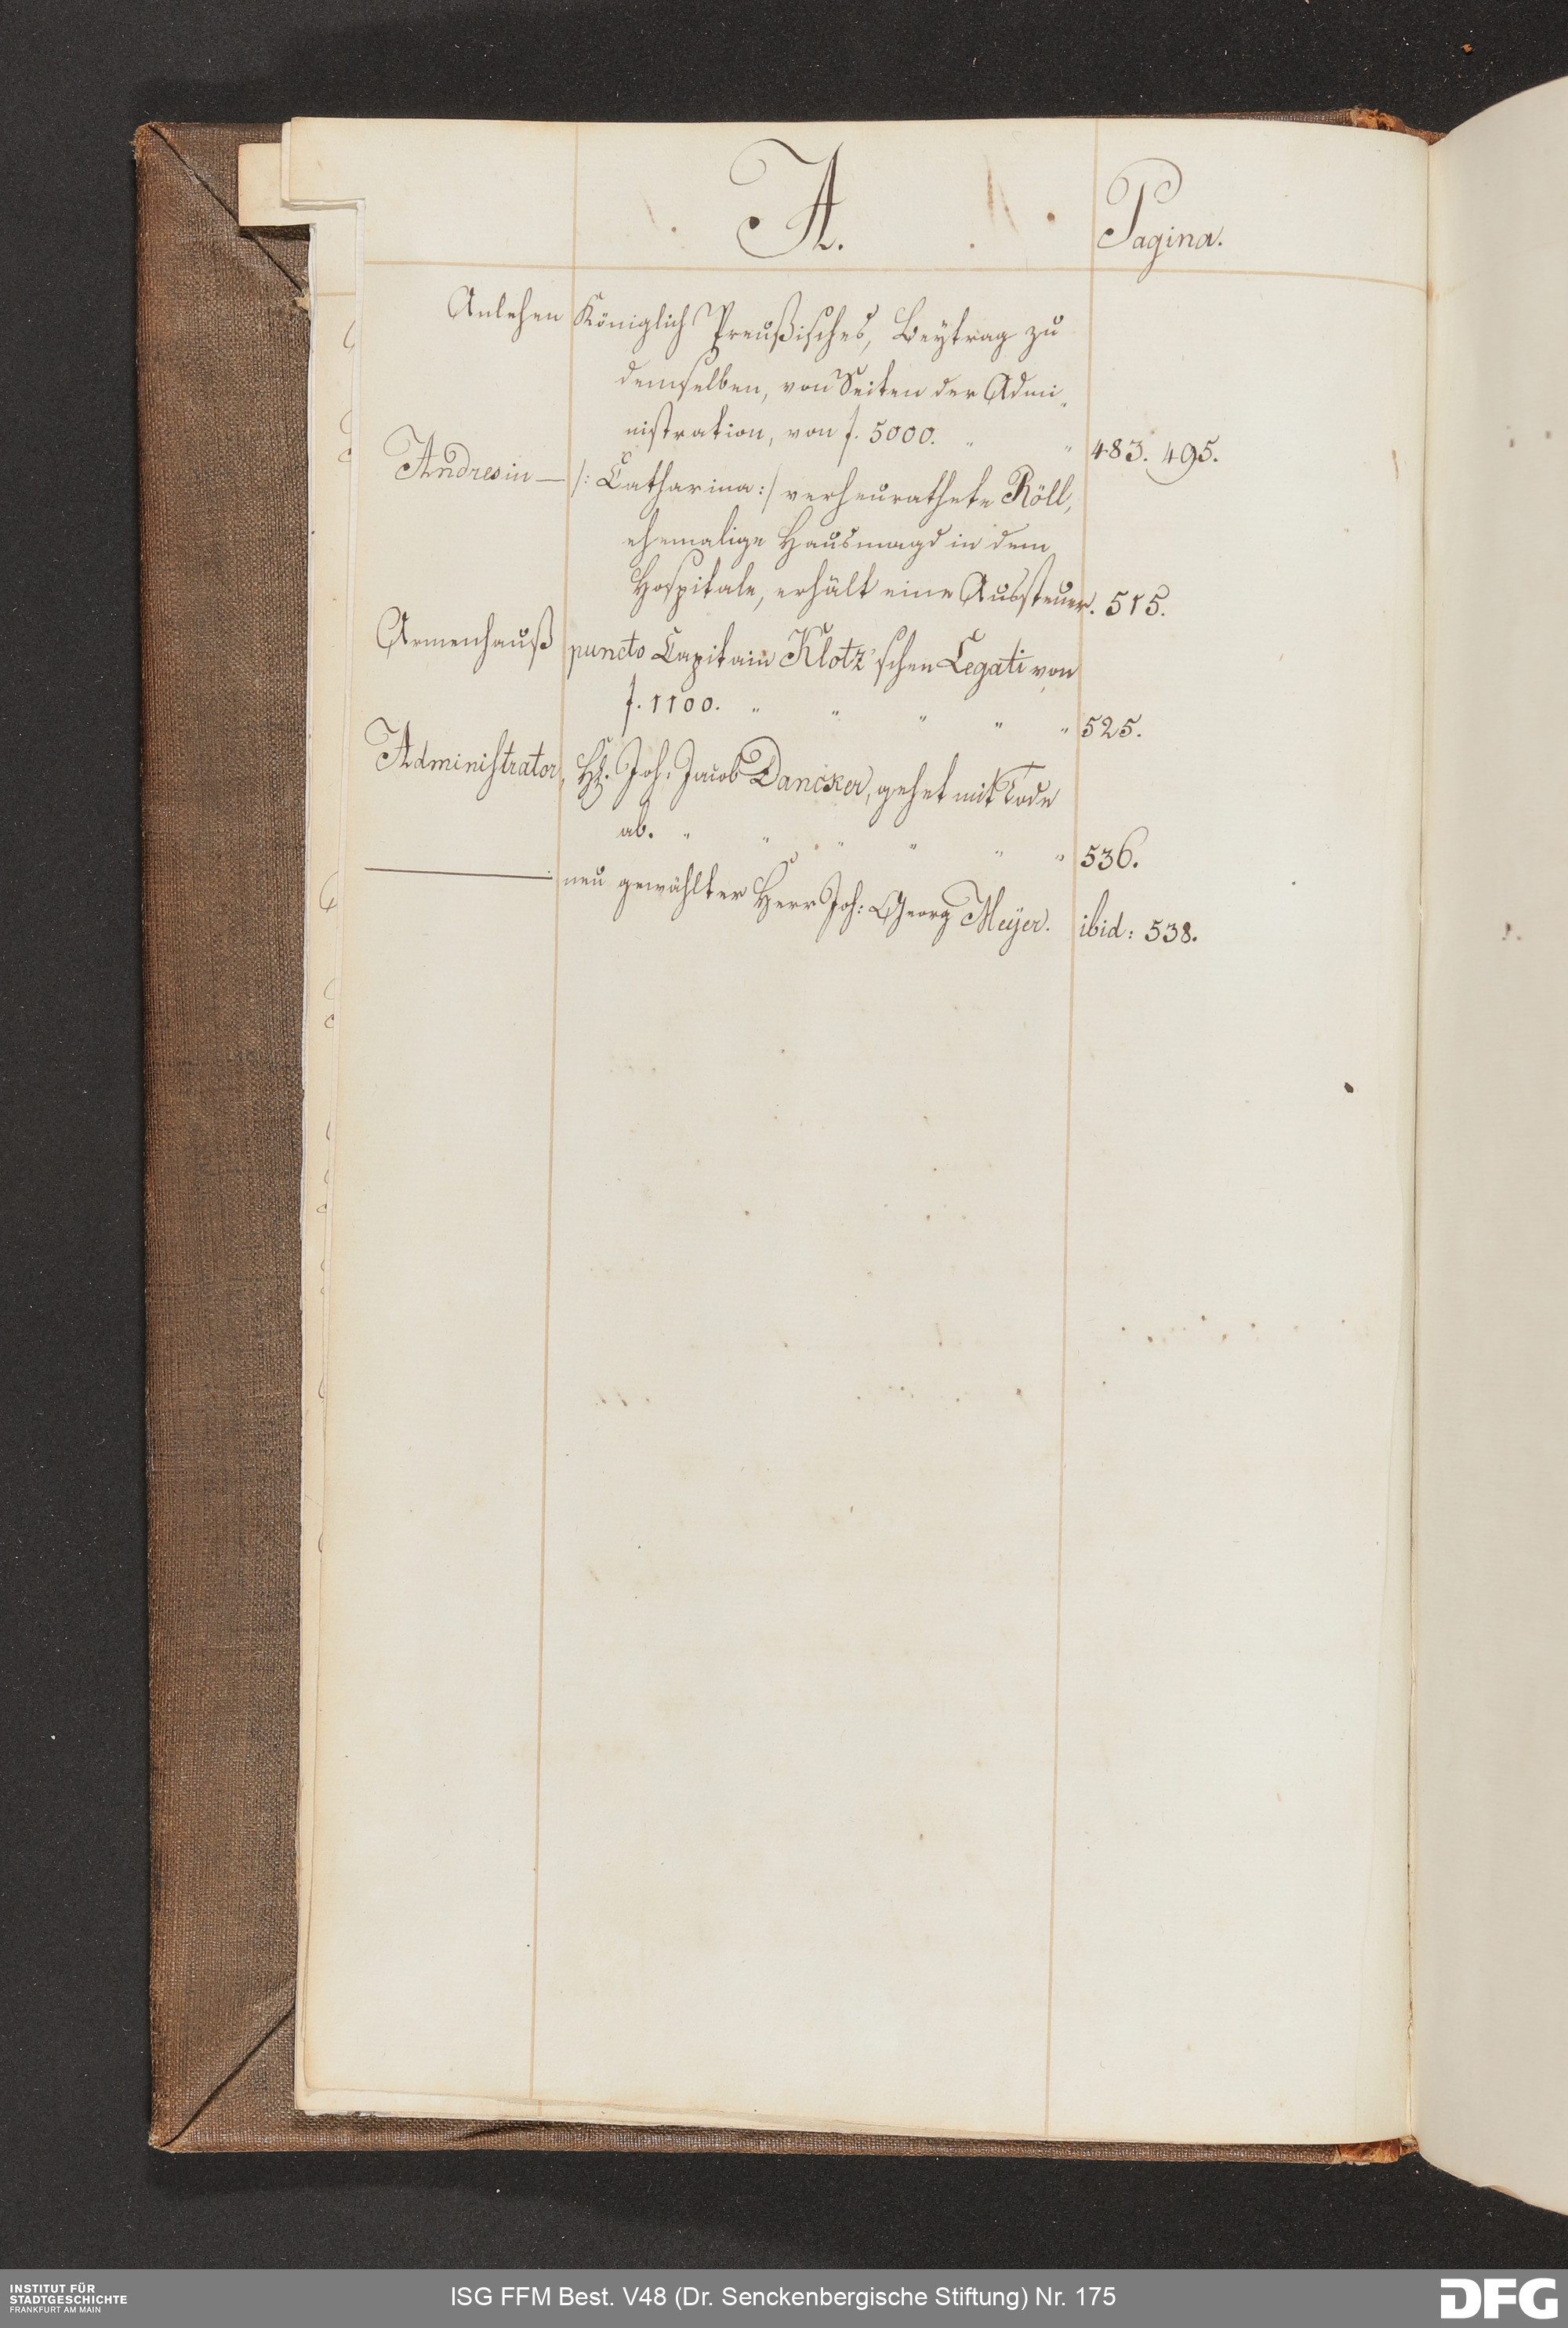 A.
Pagina.
Anlehen Königlich Preußisches, Beytrag zu
demselben, von Seiten der Admi„
nistration, von f. 5000. „ „ 483. 495.
Andresin — /: Catharina :/ verheurathete Röll,
ehemalige Hausmagd in dem
Hospitale, erhält eine Aussteuer. 515.
Armenhauß puncto Capitain Klotz'schen Legati von
f. 1100. „ „ „ „ „ 525.
Administrator, H. Joh: Jacob Dancker, gehet mit Tode
ab. „ „ „ „ „ „ 536.
— neu gewählter Herr Joh: Georg Meÿer. ibid: 538.
INSTITUT FÜR
STADTGESCHICHTE
FRANKFURT AM MAIN
ISG FFM Best. V48 (Dr. Senckenbergische Stiftung) Nr. 175
DFG